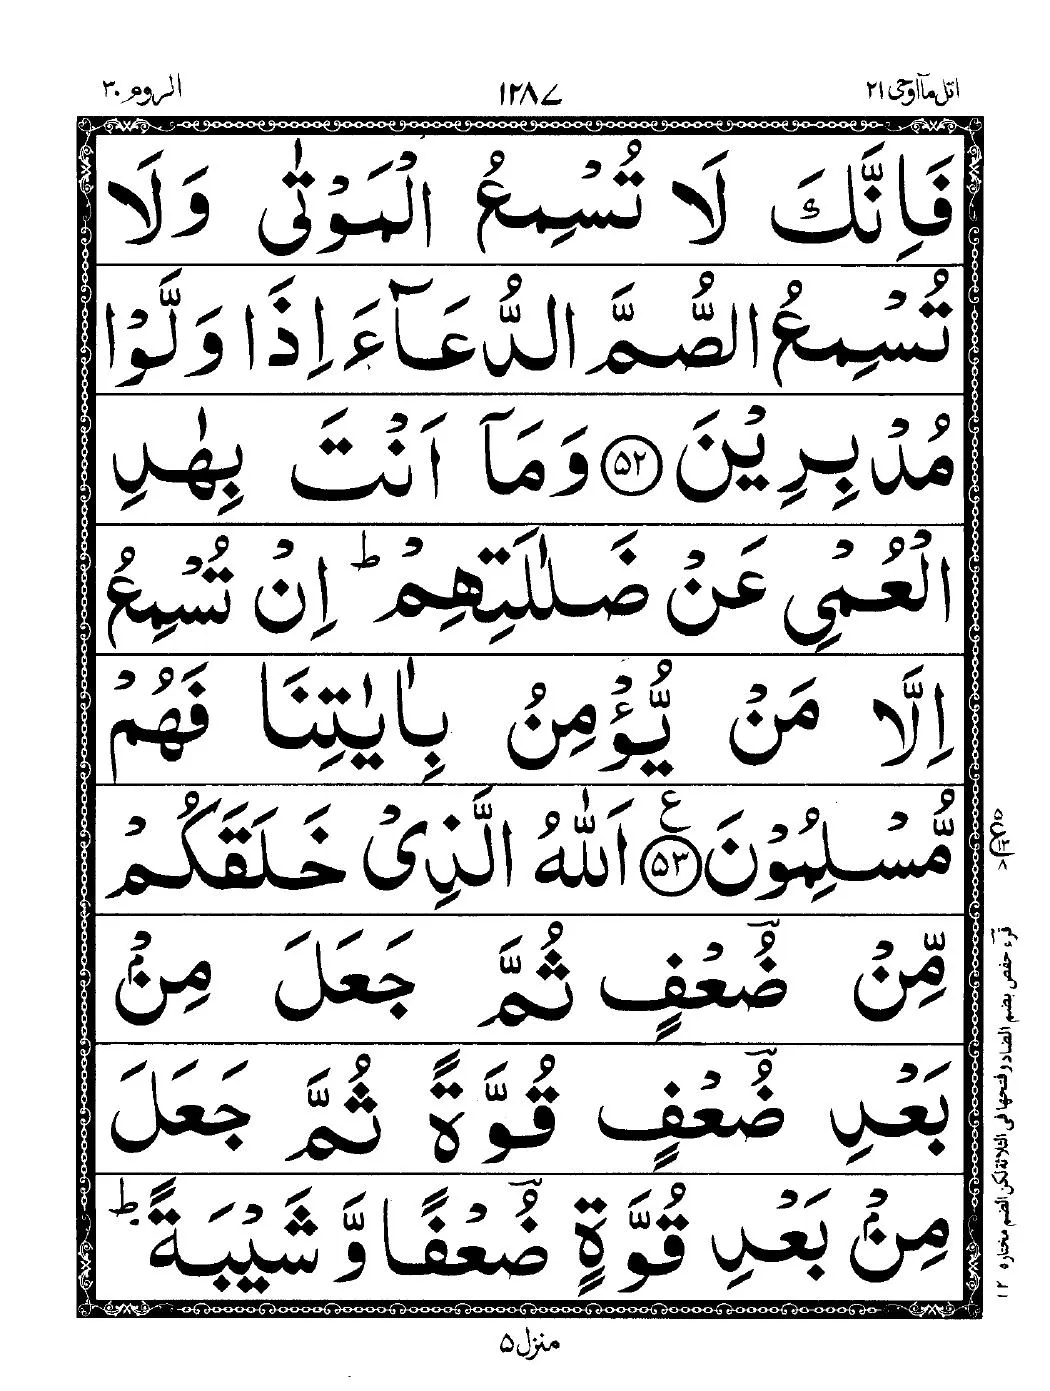 اتل مآ اوحی ۲۱
۱۲۸۷
الروم ۳۰
فَاِنَّكَ لَا تُسْمِعُ الْمَوْتٰى وَلَا
تُسْمِعُ الصُّمَّ الدُّعَآءَ اِذَا وَلَّوْا
مُدْبِرِيْنَ ﴿۵۲﴾ وَمَآ اَنْتَ بِهٰدِ
الْعُمْيِ عَنْ ضَلٰلَتِهِمْ ؕ اِنْ تُسْمِعُ
اِلَّا مَنْ يُّؤْمِنُ بِاٰيٰتِنَا فَهُمْ
مُّسْلِمُوْنَ ﴿۵۳﴾ ع اَللّٰهُ الَّذِىْ خَلَقَكُمْ
مِّنْ ضُؔعْفٍ ثُمَّ جَعَلَ مِنْۢ
بَعْدِ ضُؔعْفٍ قُوَّةً ثُمَّ جَعَلَ
مِنْۢ بَعْدِ قُوَّةٍ ضُؔعْفًا وَّ شَيْبَةً ؕ
قرء حفص بضم الضاد وفتحها فی الثلاثة لکن الضم مختاره ۱۲
منزل ۵